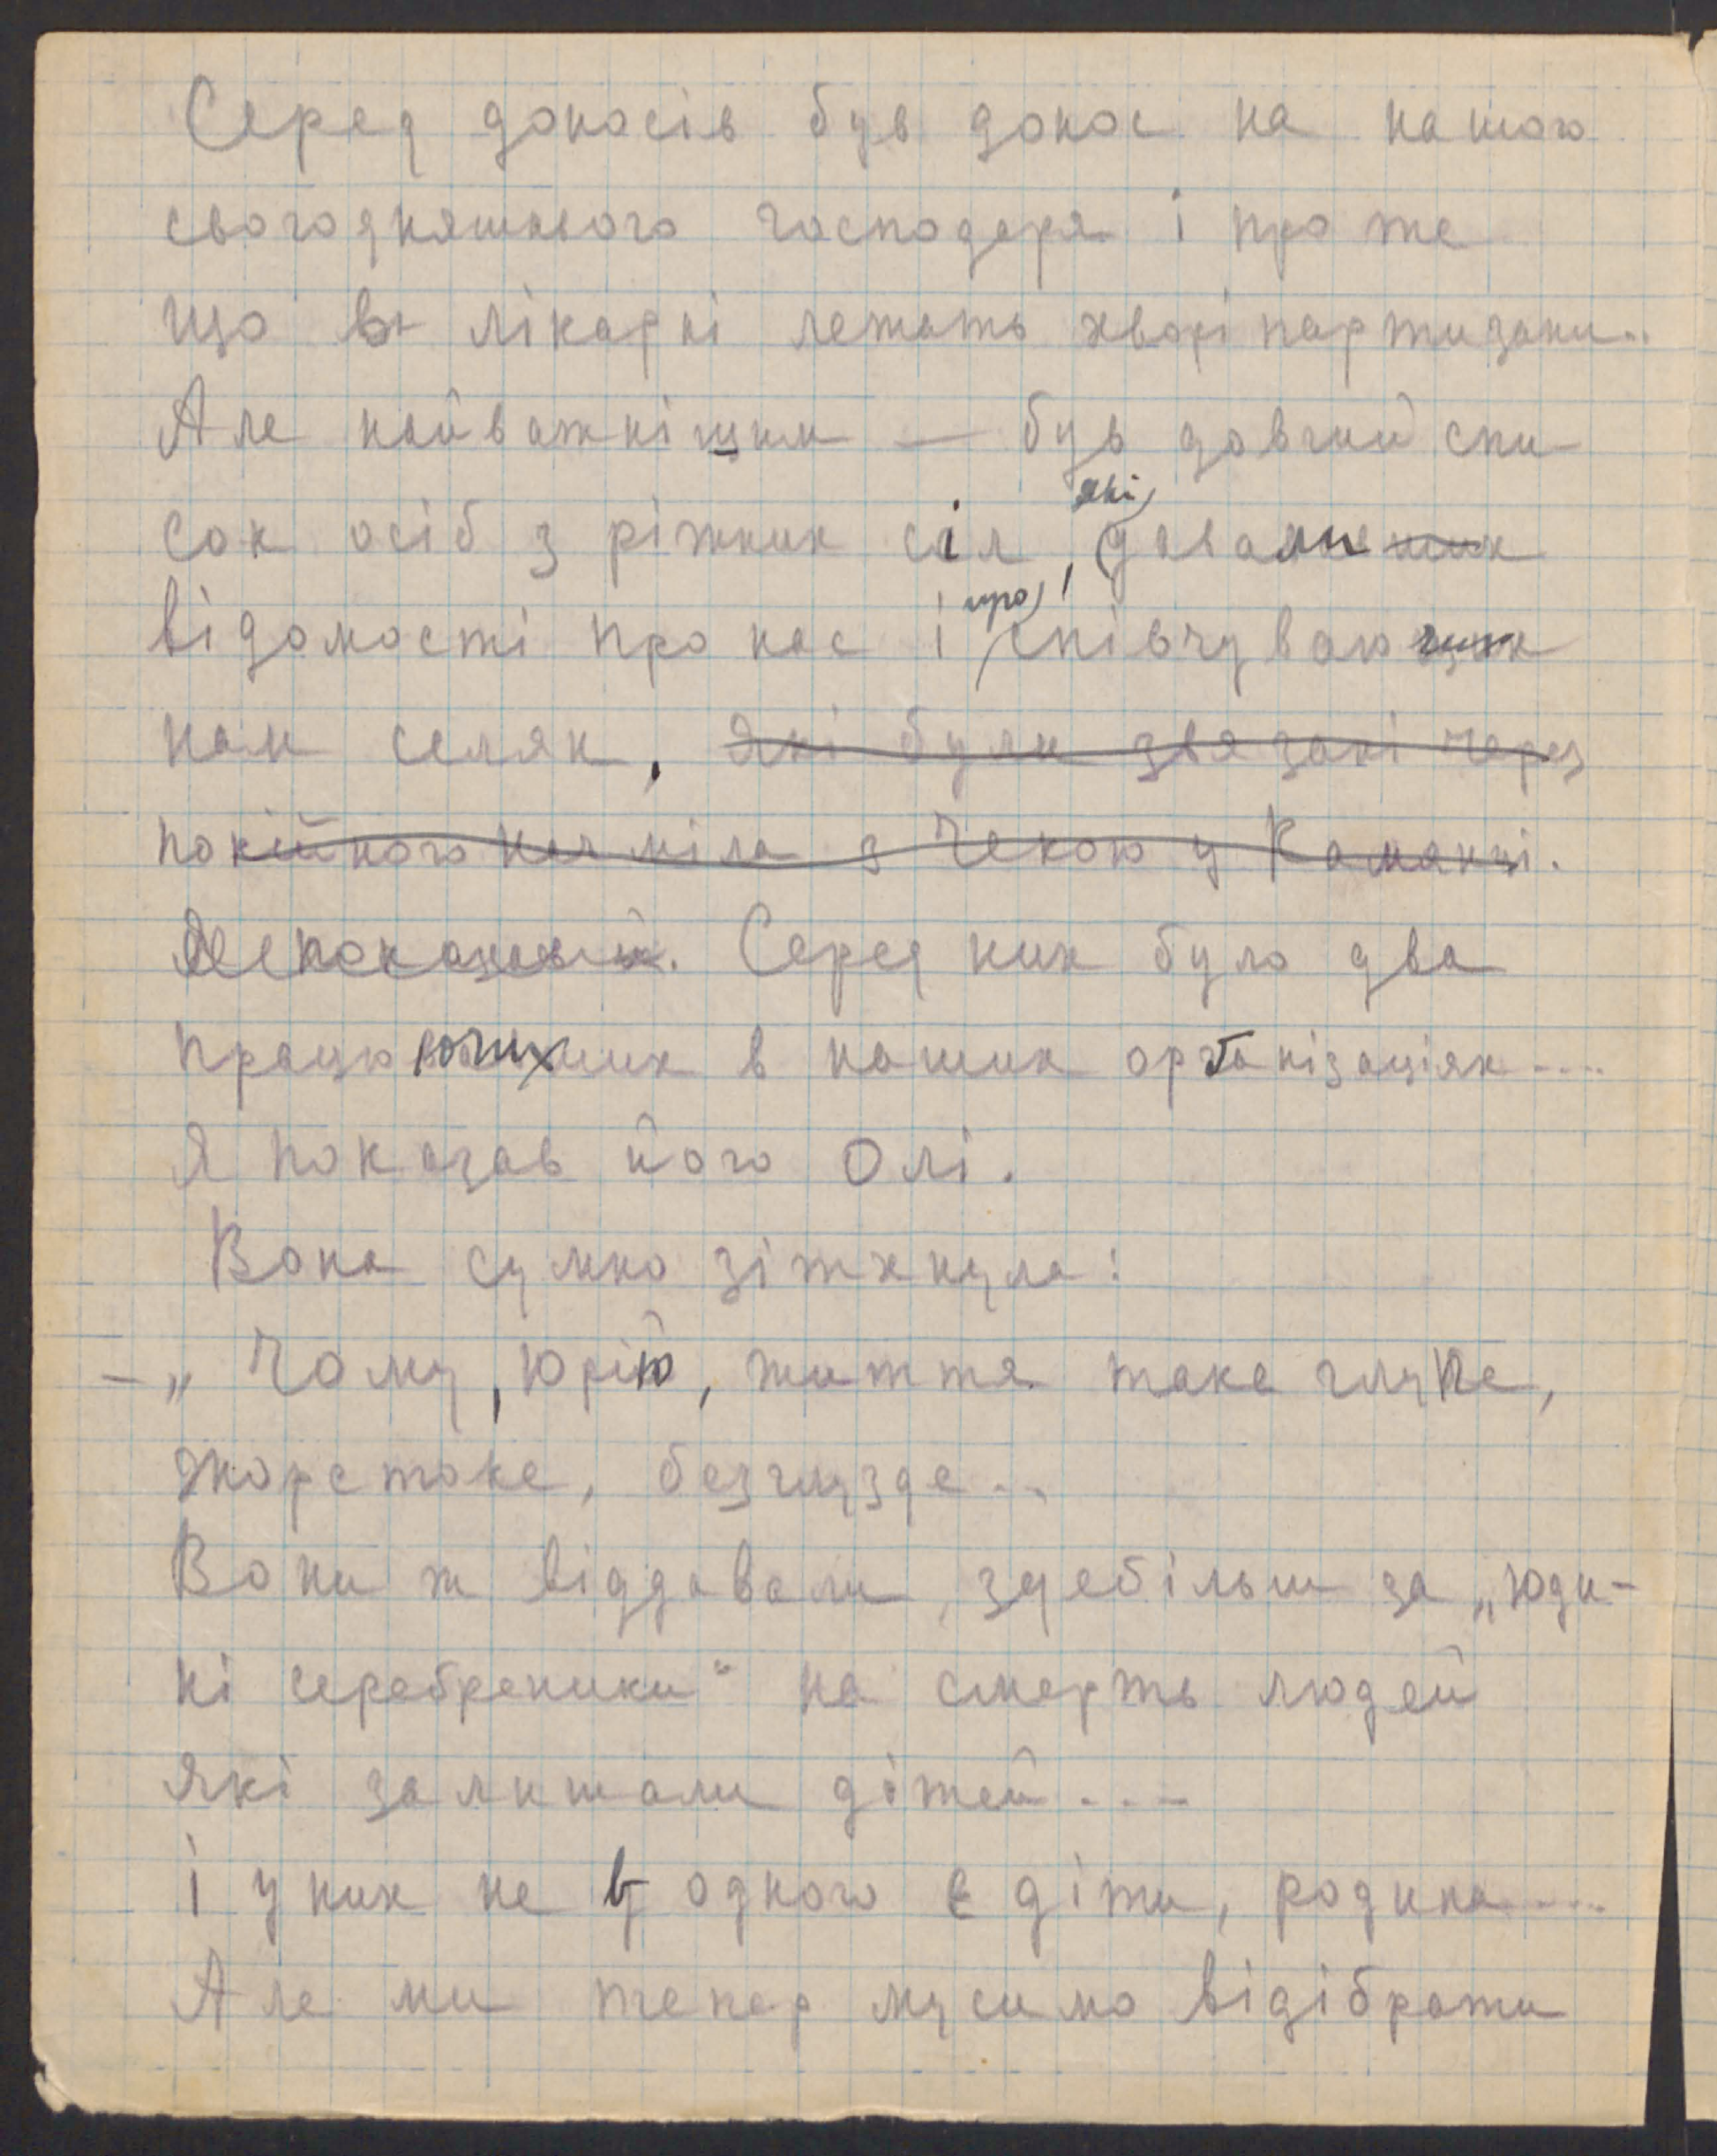 Серед доносів був донос на нашого
сьогодняшнього господаря і про те
що в лікарні лежать хворі партизани..
Але найважнішим — був довгий спи-
сок осіб з ріжних сіл, які давали
відомості про нас і про співчуваючих
нам селян, які були звязані через
покійного з Чекою у Камянці.
Серед них було два
працюючих в наших організаціях....
Я показав його Олі.
Вона сумно зітхнула:
— „Чому, Юрію, життя таке глупе,
жорстоке, безглузде..
Вони ж віддавали, здебільш за „юди-
ні серебреники“ на смерть людей
які залишали дітей....
і у них не в одного є діти, родина....
Але ми тепер мусимо відібрати